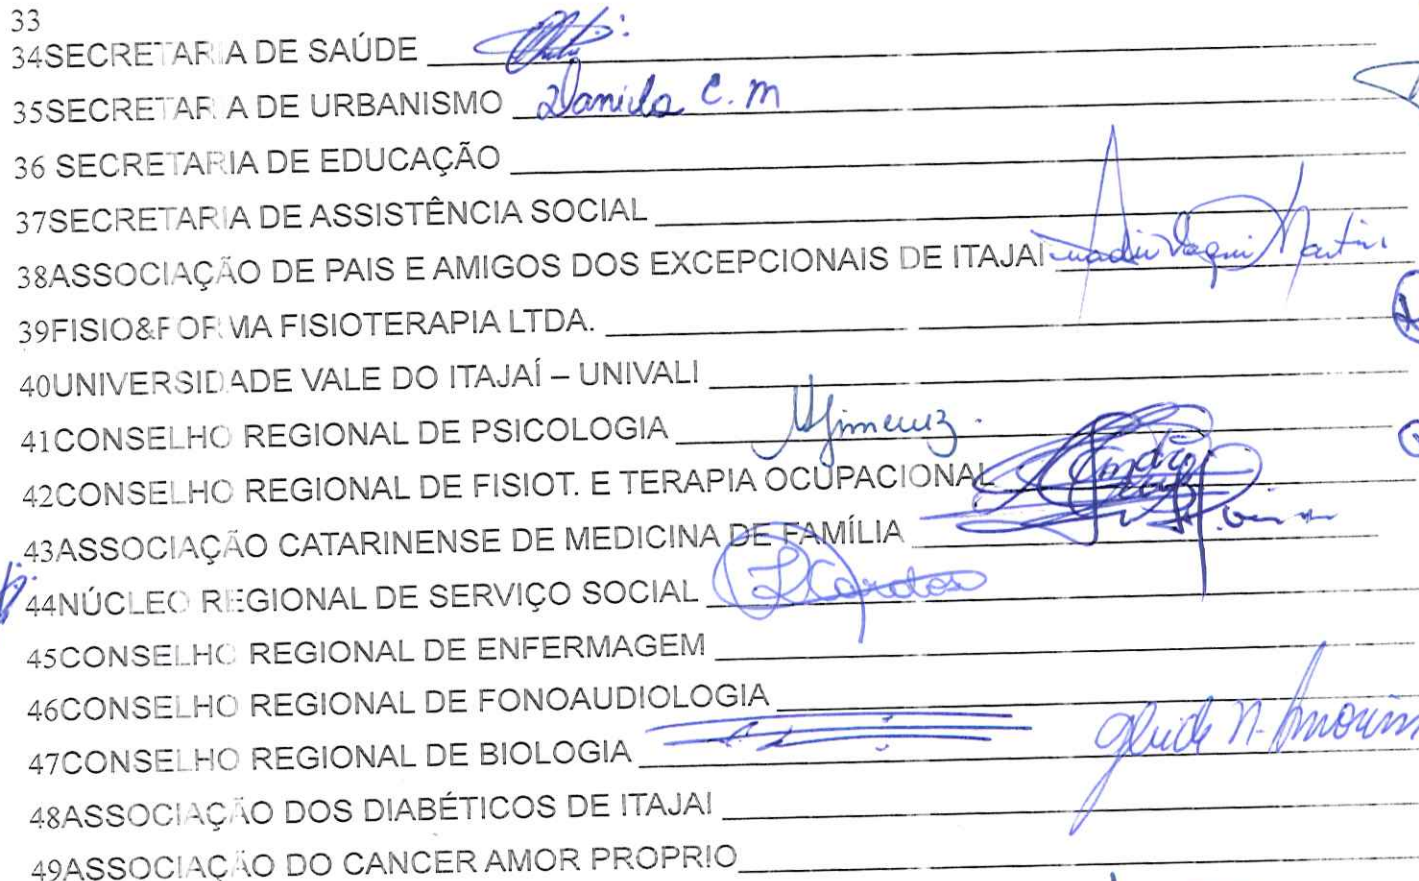 33
34SECRETARIA DE SAÚDE
35SECRETARIA DE URBANISMO Daniela C. M
36 SECRETARIA DE EDUCAÇÃO
37SECRETARIA DE ASSISTÊNCIA SOCIAL
38ASSOCIAÇÃO DE PAIS E AMIGOS DOS EXCEPCIONAIS DE ITAJAI Martins
39FISIO&FORMA FISIOTERAPIA LTDA.
40UNIVERSIDADE VALE DO ITAJAÍ – UNIVALI
41CONSELHO REGIONAL DE PSICOLOGIA
42CONSELHO REGIONAL DE FISIOT. E TERAPIA OCUPACIONAL
43ASSOCIAÇÃO CATARINENSE DE MEDICINA DE FAMÍLIA
44NÚCLEO REGIONAL DE SERVIÇO SOCIAL
45CONSELHO REGIONAL DE ENFERMAGEM
46CONSELHO REGIONAL DE FONOAUDIOLOGIA
47CONSELHO REGIONAL DE BIOLOGIA
48ASSOCIAÇÃO DOS DIABÉTICOS DE ITAJAI
49ASSOCIAÇÃO DO CANCER AMOR PROPRIO